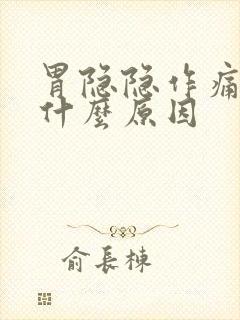 胃隐隐作痛
什麼原因
俞長棟